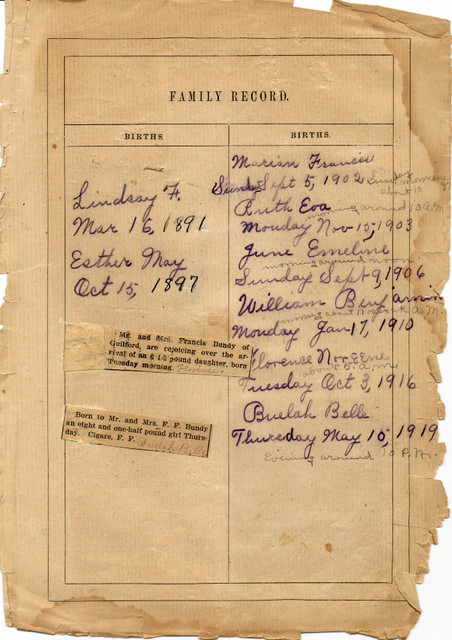 FAMILY RECORD.
BIRTHS.
Lindsay F.
Mar 16, 1891
Esther May
Oct 15, 1897
Mr. and Mrs. Francis Bundy of
Guilford, are rejoicing over the ar-
rival of an 8 1-2 pound daughter, born
Tuesday morning Florence
Born to Mr. and Mrs. F. F. Bundy
an eight and one-half pound girl Thurs-
day. Cigars, F. F. Bulah Belle
BIRTHS.
Marian Francis
Sunday Sept 5, 1902 Sunday morning
about 10
Ruth Eva
morning around 10 a.m.
Monday Nov 15, 1903
June Emeline
morning around noon
Sunday Sept 9, 1906
William Benjamin
morning about A.M.
Monday Jan 17, 1910
Florence
about 5 a.m.
Tuesday Oct 3, 1916
Buelah Belle
Thursday May 15, 1919
Evening around 10 P.M.